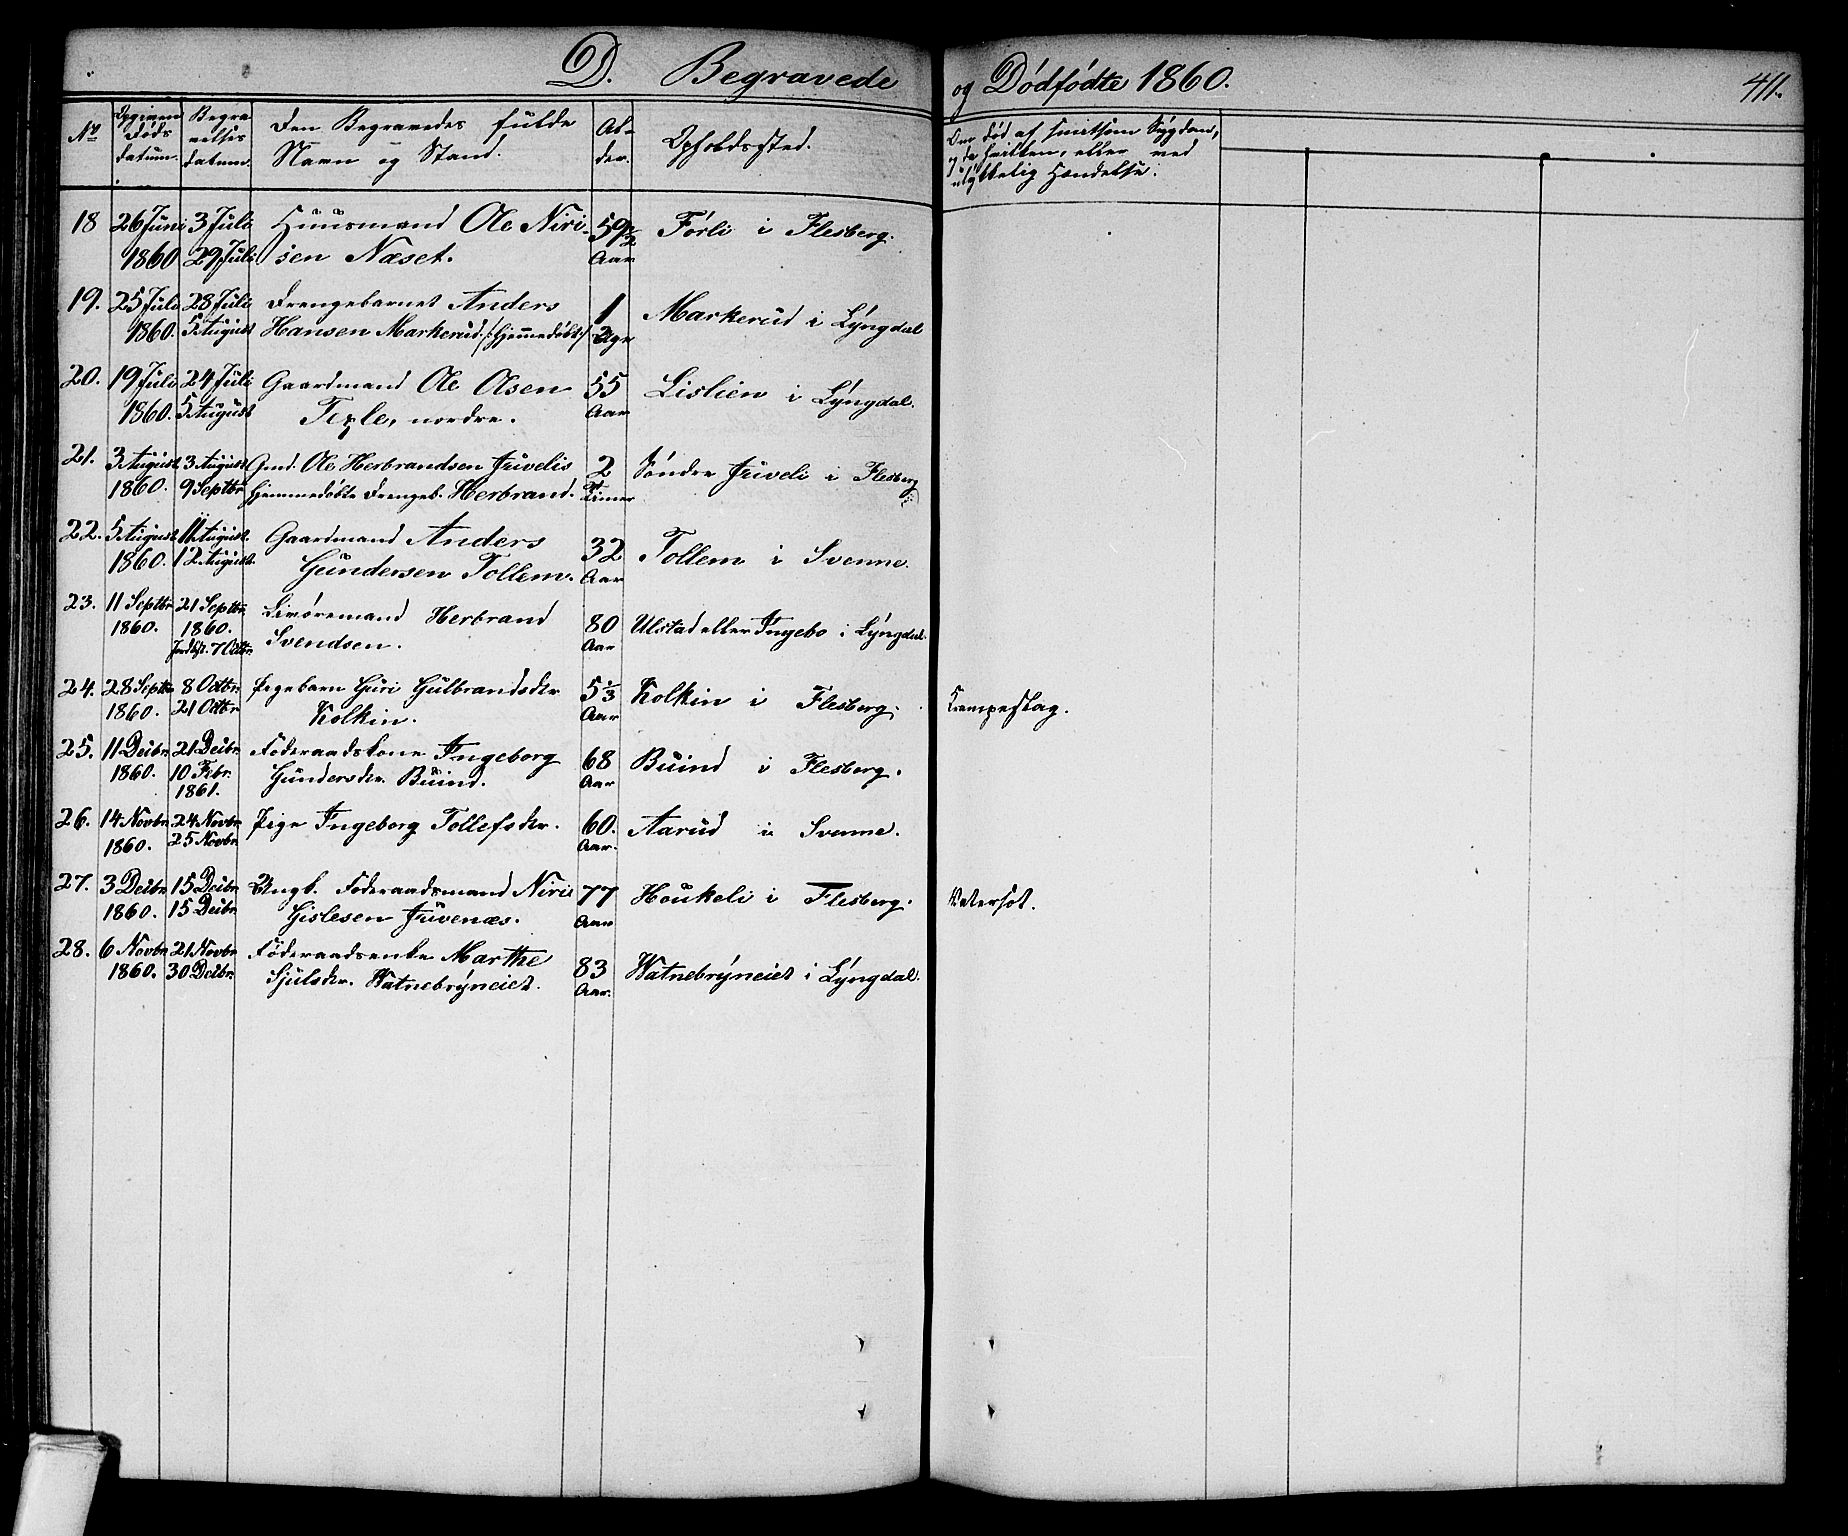 D. Begravede og Dödfödte 1860. 411.
No
Opgiven Døds datum.
Begravelses datum.
Den Begravedes fulde Navn og Stand.
Alder.
Opholdssted.
Om død af smitsom Sygdom, og da hvilken, eller ved ulykkelig Hændelse.
18 26 Juni 3 Juli Huusmand Ole Niri- 59 1/2 Förli i Flesberg.
1860 29 Juli sen Næset. Aar
19. 25 Juli 28 Juli Drengebarnet Anders 1 Markerud i Lyngdal
1860. 5 August Hansen Markerud /:hjemmedøbt:/ Uge
20. 19 Juli 24 Juli Gaardmand Ole Olsen 55 Lislien i Lyngdal.
1860. 5 August Texle, nordre. Aar
21. 3 August 3 August Gmd. Ole Herbrandsen Juvelis 2 Søndre Juveli i Flesberg
1860. 9 Septbr hjemmedøbte Drengeb. Herbrand. Timer
22. 5 August 11 August. Gaardmand Anders 32 Tollem i Svenne.
1860. 12 August. Gundersen Tollem. Aar
23. 11 Septbr 21 Septbr Livøremand Herbrand 80 Ulstad eller Ingebo i Lyngdal.
1860. 1860. Svendsen. Aar
7 Octbr.
24. 28 Septbr 8 Octbr Pigebarn Guri Gulbrandsdtr 5 1/3 Kolkin i Flesberg. Krampeslag.
1860. 21 Octbr Kolkin. Aar
25. 11 Decbr. 21 Decbr. Föderaadskone Ingeborg 68 Buind i Flesberg.
1860. 10 Febr. Gundersdtr. Buind. Aar
1861.
26. 14 Novbr. 24 Novbr. Pige Ingeborg Tollefsdtr. 60. Aarud i Svenne.
1860. 25 Novbr. Aar.
27. 3 Decbr. 15 Decbr. Ungk. Föderaadsmand Niri 77 Houkeli i Flesberg. Vatersot.
1860. 15 Decbr. Gislesen Juvenæs. Aar
28. 6 Novbr. 21 Novbr. Föderaadsenke Marthe 83 Watnebryneiet i Lyngdal.
1860. 30 Decbr. Sjulsdtr. Watnebryneiet. Aar.